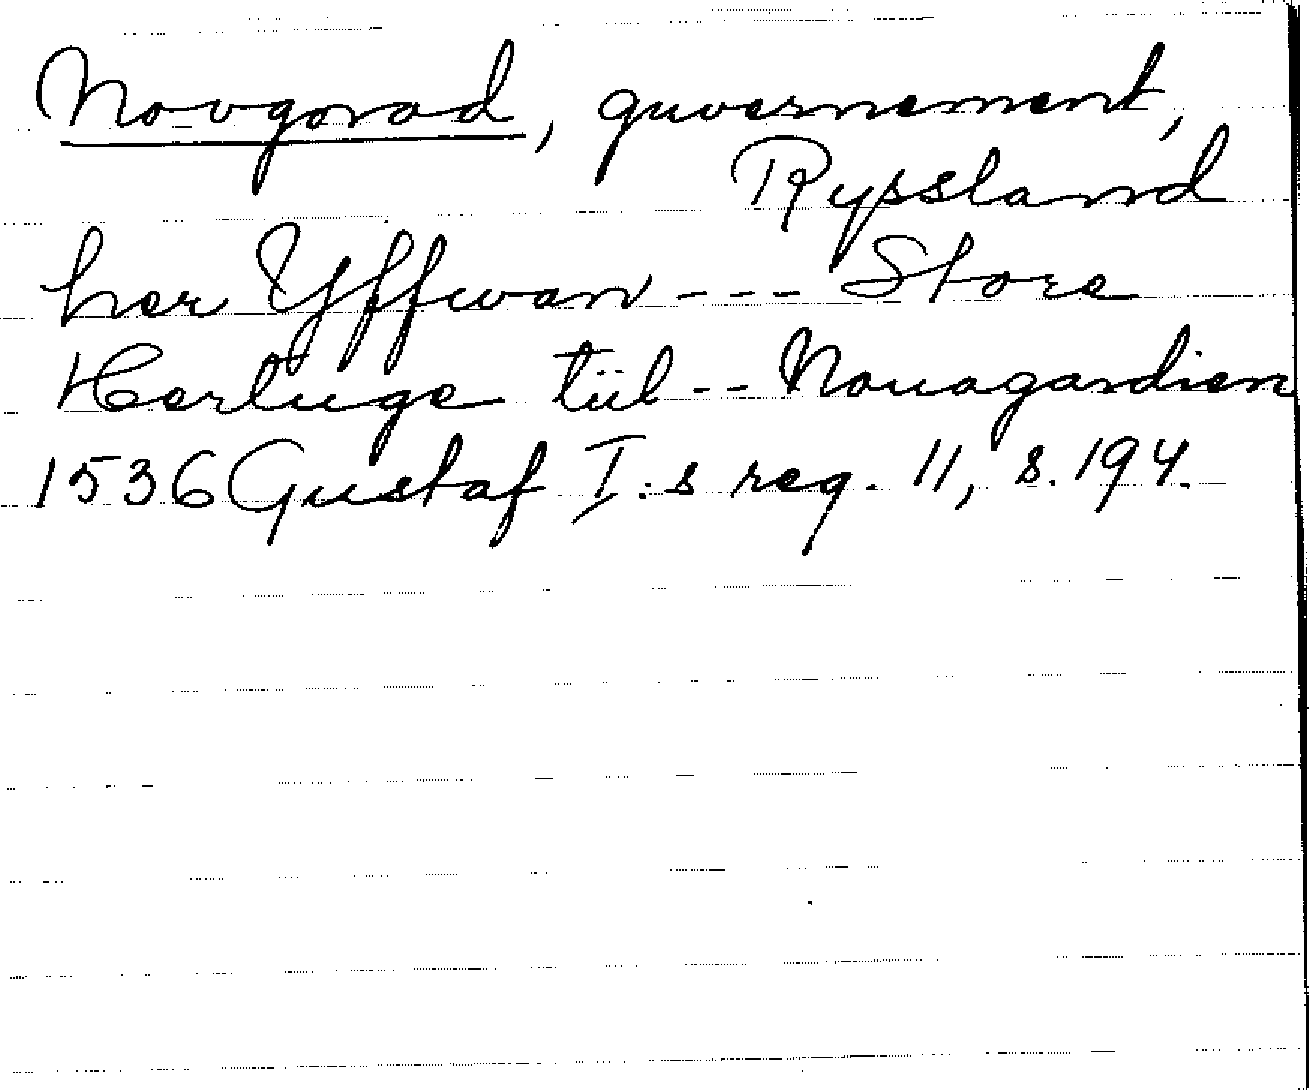 Novgorod, guvernement,
Ryssland
her Yffwan --- Store
Hertuge tiil -- Nouagardien
1536 Gustaf I:s reg. 11, s. 194.